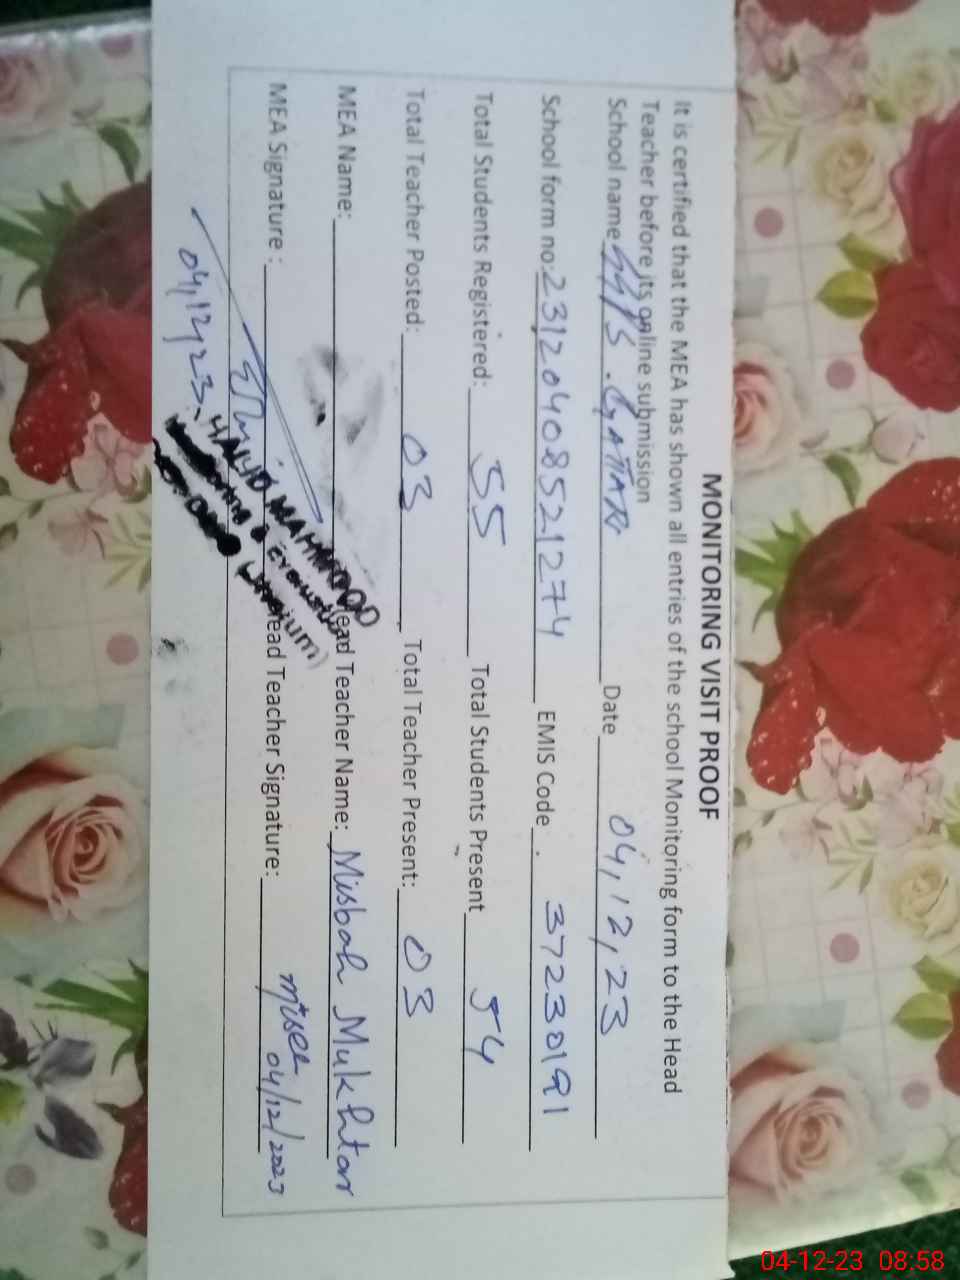 MONITORING VISIT PROOF
It is certified that the MEA has shown all entries of the school Monitoring form to the Head
Teacher before its online submission
School name Date 04,12,23
School form no: 23120408521274 EMIS Code 37230191
Total Students Registered: 55 Total Students Present 54
Total Teacher Posted: 03 Total Teacher Present: 03
MEA Name: Head Teacher Name: Misbah Mukhtar
MEA Signature : Head Teacher Signature: 04/12/2023
04,12,23
MAHMOOD
04-12-23 08:58